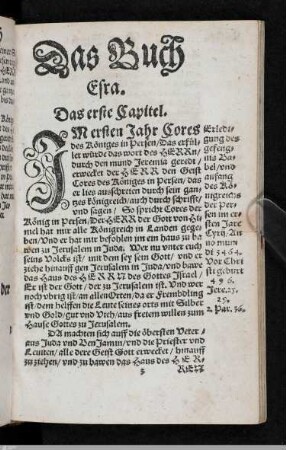 Das Buch
Esra.
Das erste Capitel.
IM ersten Jahr Cores
des Königes in Persen/Das erfül-
let würde das wort des HERRN/
durch den mund Jeremia geredt/
erwecket der HERR den Geist
Cores des Königes in Persen/das
er lies ausschreien durch sein gan-
tzes Königreich/auch durch schrifft/
vnd sagen/ So spricht Cores der
König in Persen/Der HERR der Gott von Hi-
mel hat mir alle Königreich in Landen gege
ben/Vnd er hat mir befohlen jm ein haus zu ba
wen zu Jerusalem in Juda. Wer nu vnter euch
seins Volcks ist/ mit dem sey sein Gott/ vnd er
ziehe hinauff gen Jerusalem in Juda/vnd bawe
das Haus des HERRN des Gottes Jsrael
Er ist der Gott/ der zu Jerusalem ist. Vnd wer
noch vbrig ist an allen Orten/da er Frembdling
ist/dem helffen die Leute seines orts mit Silber
vnd Gold/gut vnd Vieh/aus freiem willen zum
Hause Gottes zu Jerusalem.
DA machten sich auff die öbersten Veter
aus Juda vnd BenJamin/ vnd die Priester vnd
Leuiten/ alle dere Geist Gott erwecket/ hinauff
zu ziehen/ vnd zu bawen das Haus des HER-
RREN
Erledi-
gung des
gefeng-
nis Ba-
bel/vnd
anfang
des Kö-
nigreichs
der Per-
sen im er-
sten Jare
Cyri. An-
no mun
di 3464.
Vor Chri
sti geburt
496.
Jere. 27.
29.
2. Par. 36.